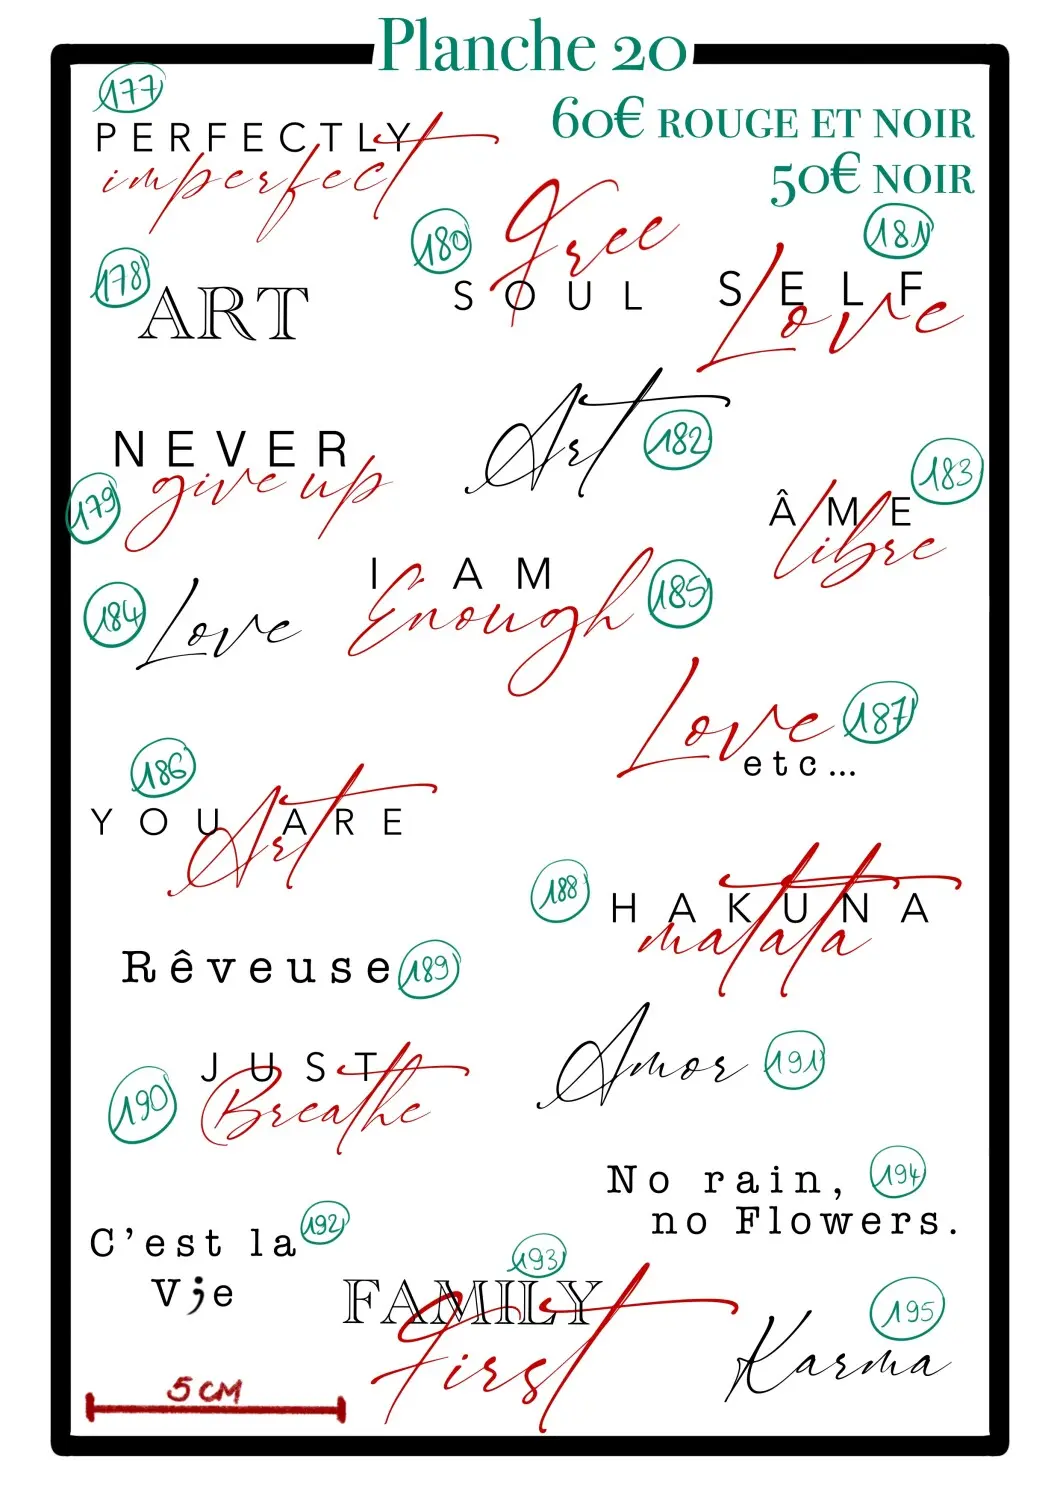 Planche 20
60€ ROUGE ET NOIR
50€ NOIR
177
PERFECTLY
imperfect
180
Free
SOUL
181
SELF
Love
178
ART
182
Art
NEVER
179
give up
183
ÂME
libre
184
Love
I AM
185
Enough
187
Love
etc...
186
YOU ARE
Art
188
HAKUNA
matata
Rêveuse
189
JUST
190
Breathe
191
Amor
194
No rain,
no Flowers.
192
C'est la
V;e
193
FAMILY
First
195
Karma
5 CM